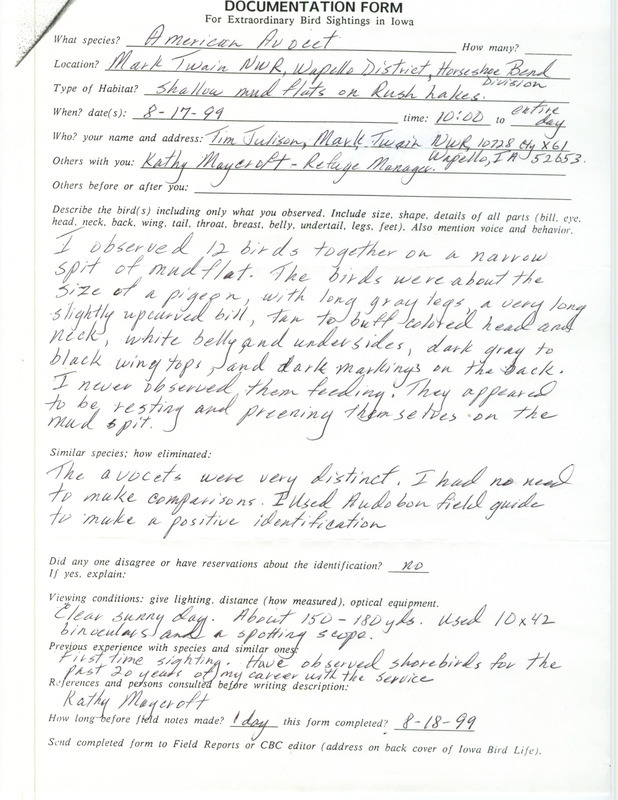 DOCUMENTATION FORM
For Extraordinary Bird Sightings in Iowa
What species? American Avocet How many?
Location? Mark Twain NWR, Wapello District, Horseshoe Bend Division
Type of Habitat? Shallow mud flats on Rush Lakes.
When? date(s): 8-17-99 time: 10:00 to entire day
Who? your name and address: Tim Julison, Mark Twain NWR, 10728 Cty X61
Wapello, IA 52653.
Others with you: Kathy Maycroft - Refuge Manager.
Others before or after you:
Describe the bird(s) including only what you observed. Include size, shape, details of all parts (bill, eye,
head, neck, back, wing, tail, throat, breast, belly, undertail, legs, feet). Also mention voice and behavior.
I observed 12 birds together on a narrow
spit of mudflat. The birds were about the
size of a pigeon, with long gray legs, a very long
slightly upcurved bill, tan to buff colored head and
neck, white belly and undersides, dark gray to
black wing tops, and dark markings on the back.
I never observed them feeding. They appeared
to be resting and preening themselves on the
mud spit.
Similar species; how eliminated:
The avocets were very distinct. I had no need
to make comparisons. I used Audobon field guide
to make a positive identification
Did any one disagree or have reservations about the identification? no
If yes, explain:
Viewing conditions: give lighting, distance (how measured), optical equipment.
Clear sunny day. About 150-180 yds. Used 10x42
binoculars and a spotting scope.
Previous experience with species and similar ones:
First time sighting. Have observed shorebirds for the
past 20 years of my career with the service
References and persons consulted before writing description:
Kathy Maycroft
How long before field notes made? 1 day this form completed? 8-18-99
Send completed form to Field Reports or CBC editor (address on back cover of Iowa Bird Life).